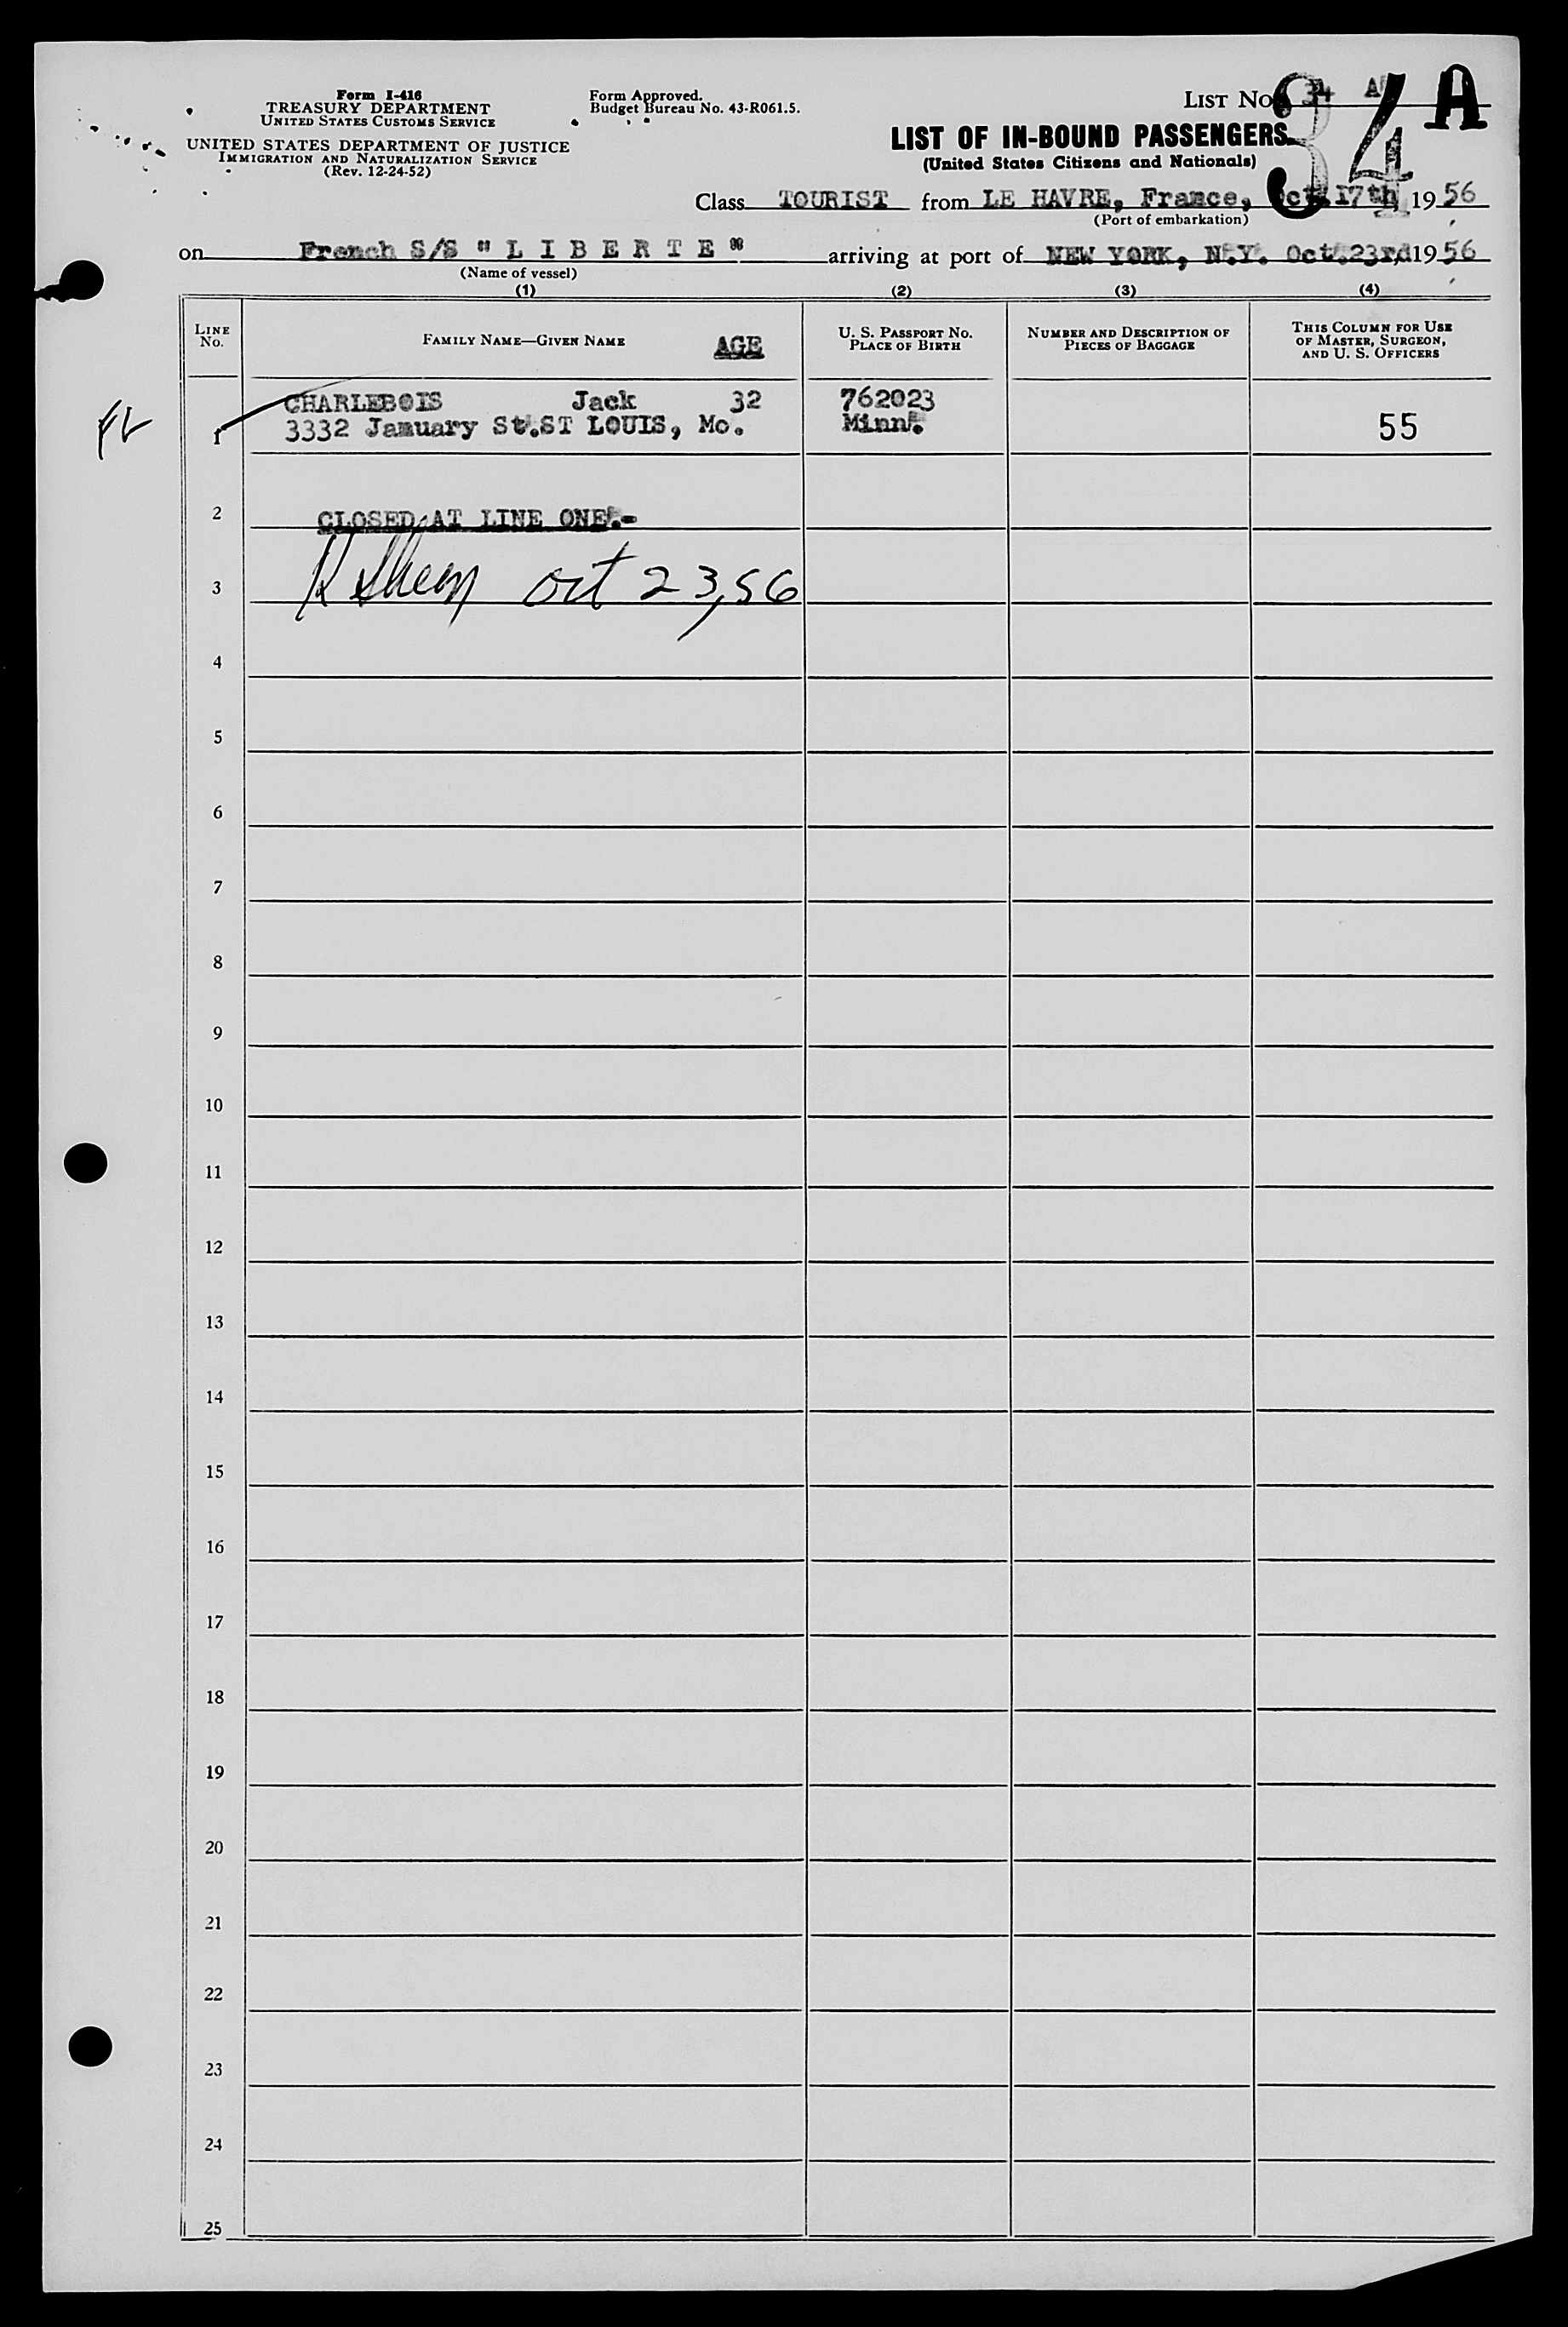 Form I-416
TREASURY DEPARTMENT
UNITED STATES CUSTOMS SERVICE
UNITED STATES DEPARTMENT OF JUSTICE
IMMIGRATION AND NATURALIZATION SERVICE
(Rev. 12-24-52)
Form Approved.
Budget Bureau No. 43-R061.5.
LIST NO. 34 A
34 A
LIST OF IN-BOUND PASSENGERS
(United States Citizens and Nationals)
Class TOURIST from LE HAVRE, France, Oct.17th, 19 56
(Port of embarkation)
on French S/S "L I B E R T E" arriving at port of NEW YORK, N.Y. Oct.23rd, 19 56
(Name of vessel)
(1) (2) (3) (4)
LINE No.
FAMILY NAME—GIVEN NAME AGE
U. S. PASSPORT NO.
PLACE OF BIRTH
NUMBER AND DESCRIPTION OF
PIECES OF BAGGAGE
THIS COLUMN FOR USE
OF MASTER, SURGEON,
AND U. S. OFFICERS
CHARLEBOIS Jack 32 762023
1 3332 January St.ST LOUIS, Mo. Minn. 55
2 CLOSED AT LINE ONE.-
3 Oct 23, 56
4
5
6
7
8
9
10
11
12
13
14
15
16
17
18
19
20
21
22
23
24
25